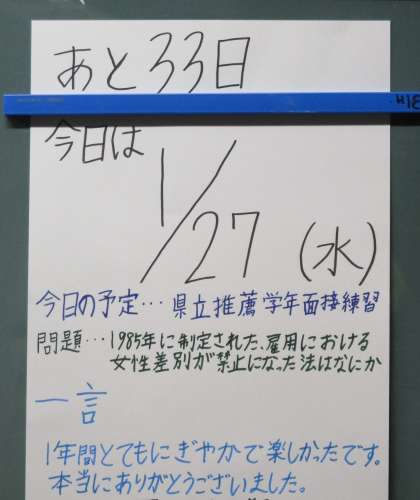 あと33日
今日は
1/27 (水)
今日の予定… 県立推薦学年面接練習
問題…1985年に制定された、雇用における
女性差別が禁止になった法はなにか
一言
1年間とてもにぎやかで楽しかったです。
本当にありがとうございました。